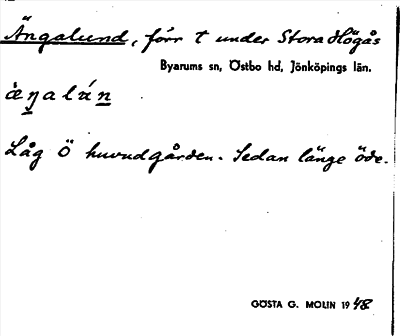 Ängalund, förr t under Stora Högås
Byarums sn, Östbo hd, Jönköpings län.
Låg Ö huvudgården. Sedan länge öde.
GÖSTA G. MOLIN 1948